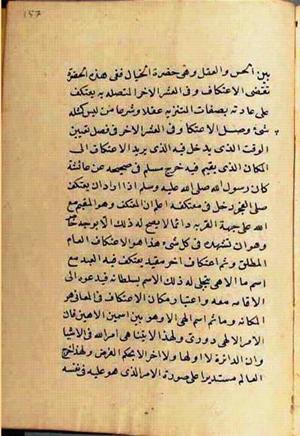 ١٥٧
بين الحس والعقل وهو حضرة الخيال ففى هذه الحضرة
تقتضى الاعتكاف وفى العشر الاخر المتصله به يعتكف
على عادته بصفات التنزيه عقلا وشرعا من ليس كمثله
شئ وصل الاعتكاف فى العشر الاخر فصل تعيين
الوقت الذى يدخل فيه الذى يريد الاعتكاف الى
المكان الذى يقيم فيه خرج مسلم فى صحيحه عن عائشة
كان رسول الله صلى الله عليه وسلم اذا اراد ان يعتكف
صلى الفجر ثم دخل فى معتكفه اعلم ان المعتكف وهو المقيم مع
الله على جهة القربه دائما لا يصح له ذلك الا بوجه خاص
وهو ان تشهده فى كل شئ هذا هو الاعتكاف العام
المطلق وثم اعتكاف اخر مقيد يعتكف فيه العبد مع
اسم ما الاهى يتجلى له ذلك الاسم بسلطانه فيدعوه الى
الاقامه معه واعتبار مكان الاعتكاف فى المعانى هو
المكانه وما ثم اسم الهى الا وهو بين اسمين الاهيين فان
الامر الالهى دورى ولهذا لا يتناهى امر الله فى الاشيا
وان الدائرة لا اول لها ولا اخر الا بحكم الفرض ولهذا خرج
العالم مستديرا على صورة الامر الذى هو عليه فى نفسه